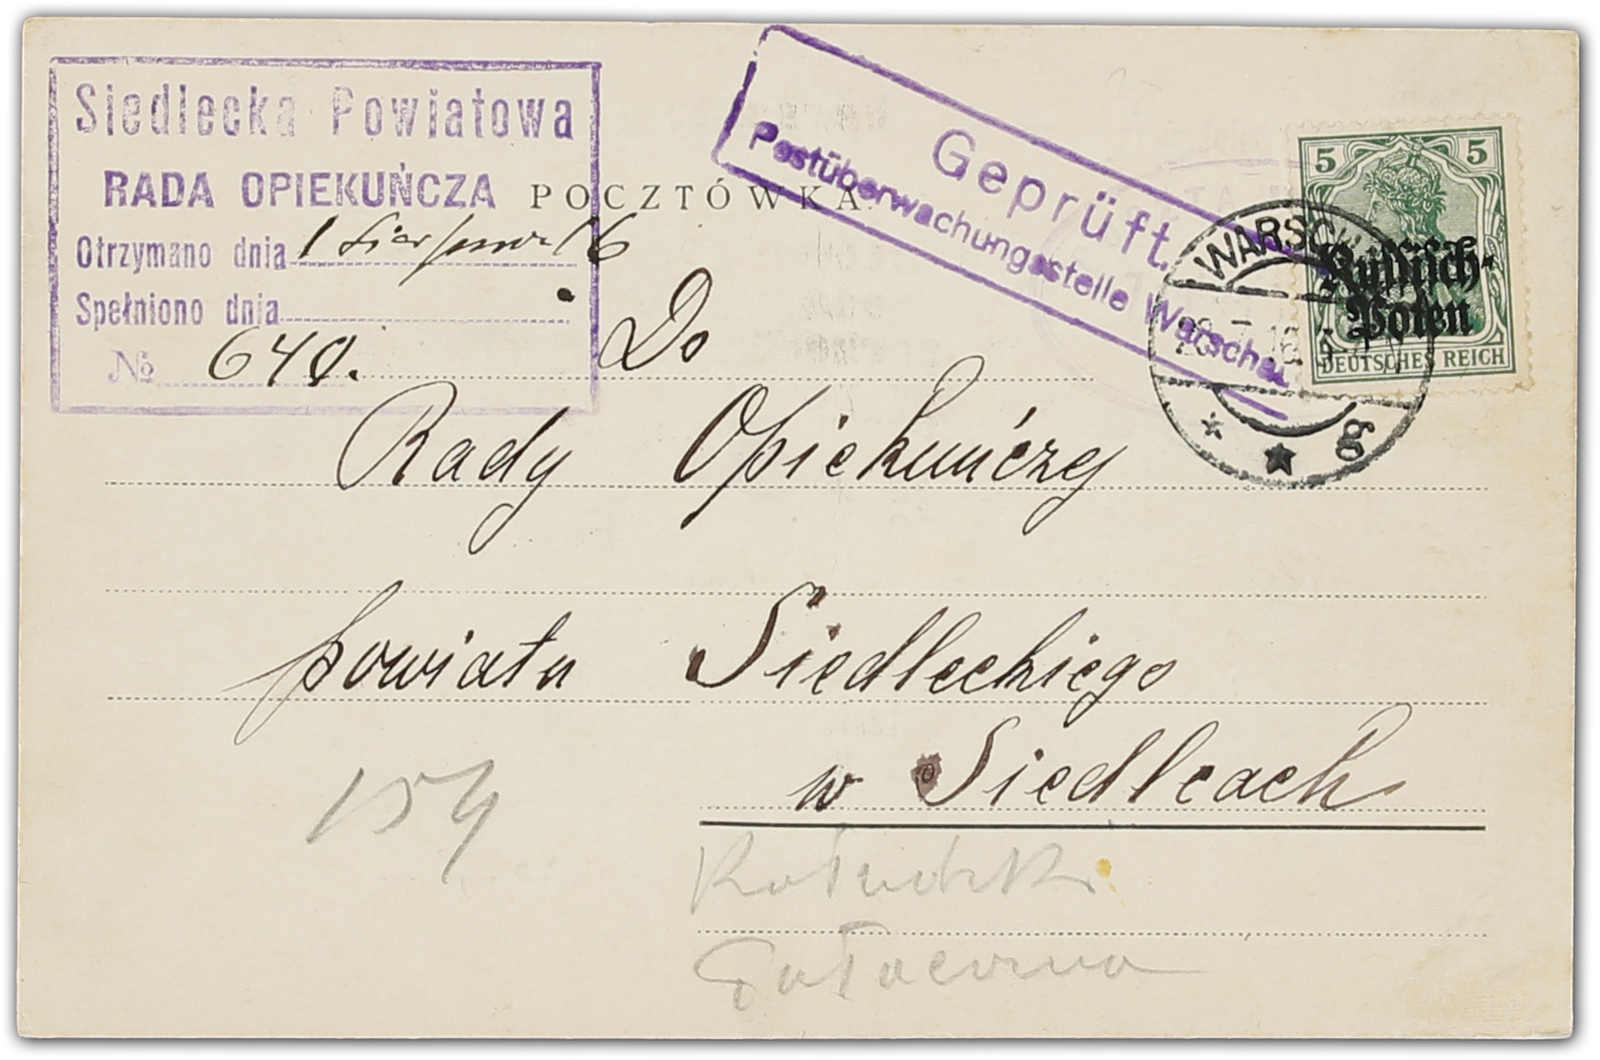 Siedlecka Powiatowa
RADA OPIEKUŃCZA
Otrzymano dnia 1 Sierpnia 16
Spełniono dnia
№ 640.
POCZTÓWKA
Geprüft.
Postüberwachungsstelle Warschau
5 5
Russisch-
Polen
DEUTSCHES REICH
WARSCHAU
g
Do
Rady Opiekuńczej
powiatu Siedleckiego
w Siedlcach
154